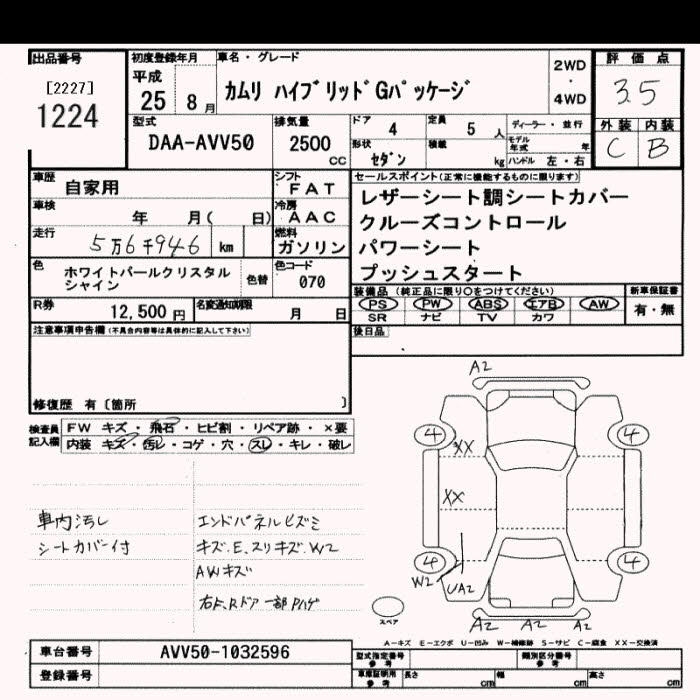 出品番号
[2227]
1224
初度登録年月
平成
25 8月
車名・グレード
カムリ ハイブリッド Gパッケージ
2WD
・
4WD
評価点
3.5
外装 内装
C B
型式
DAA-AVV50
排気量
2500
cc
ドア 4
定員 5 人
形状 セダン
積載 kg
ディーラー・並行
モデル年式 年
ハンドル 左・右
車歴 自家用
シフト FAT
車検 年 月( 日)
冷房 AAC
走行 5万6千946 km
燃料 ガソリン
色 ホワイトパールクリスタル
シャイン
色替
色コード 070
R券 12,500円
名変通知期限 月 日
セールスポイント(正常に機能するものに限ります)
レザーシート調シートカバー
クルーズコントロール
パワーシート
プッシュスタート
装備品(純正品に限り○をつけてください)
PS PW ABS エアB AW
SR ナビ TV カワ
新車保証書
有・無
後日品
注意事項申告欄(不具合内容等は具体的に記入して下さい)
修復歴 有〔箇所 〕
検査員記入欄
FW キズ・飛石・ヒビ割・リペア跡・×要
内装 キズ・汚レ・コゲ・穴・スレ・キレ・破レ
車内汚レ
シートカバー付
エンドパネルヒズミ
キズ.E.スリキズ.W2
AWキズ
右F,Rドア一部Pハゲ
A2
4 4
XX
XX
4 4
W2 UA2
A2 A2 A2
スペア
A-キズ E-エクボ U-凹み W-補修跡 S-サビ C-腐食 XX-交換済
車台番号 AVV50-1032596
登録番号
型式指定番号 参考
類別区分番号 参考
車庫証明用 参考
長さ cm
幅 cm
高さ cm